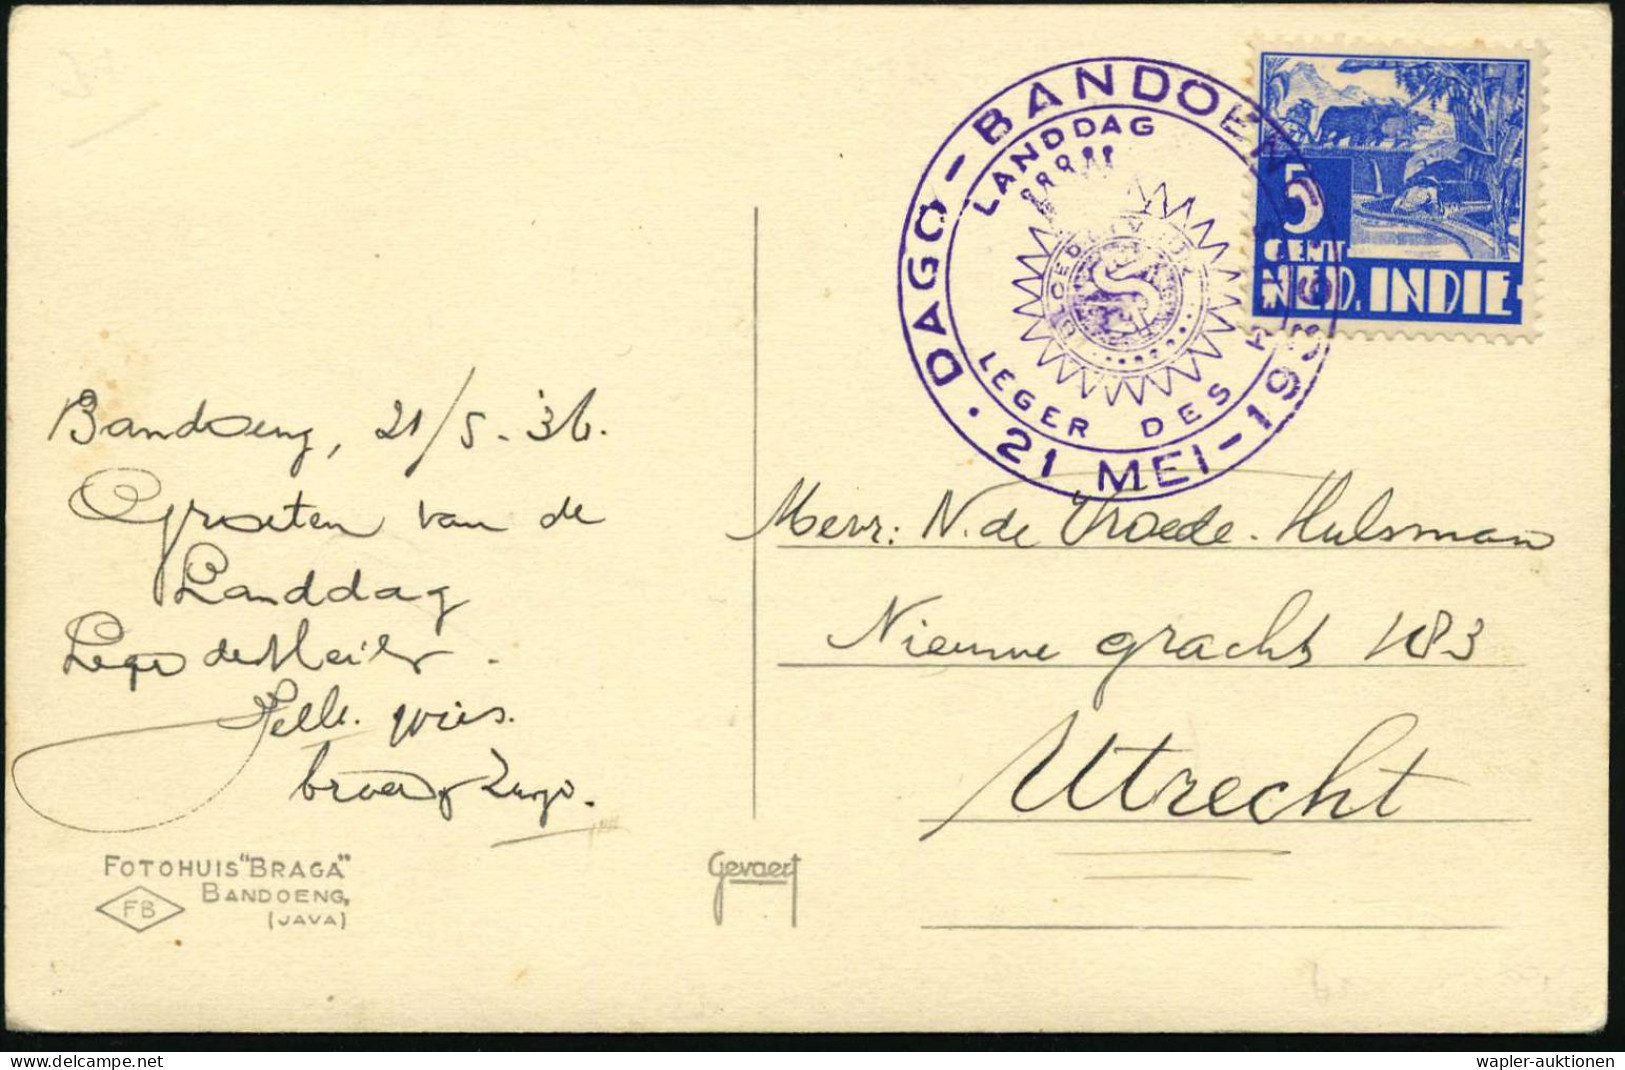 DAGO - BANDOEN
LANDDAG
LEGER DES
· 21 MEI - 193
5
CENT
NED. INDIE
Bandoeng, 21/5 - 36.
Groeten van de
Landdag
Leger des Heils.
broer
Mevr: N. de Vroede - Hulsman
Nieuwe gracht 183
Utrecht
FOTOHUIS "BRAGA"
BANDOENG,
(JAVA)
FB
Gevaert
www.delcampe.net
wapler-auktionen